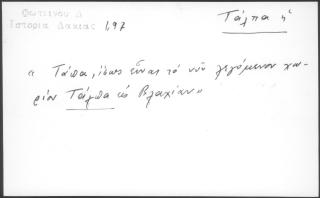 Φωτεινού Δ
Ιστορία Δακίας 1,97
Τάλπα ἡ
« Τάπα, ἴσως εἶναι τὸ νῦν λεγόμενον χω-
ρίον Τάλπα ἐν Βλαχίᾳ»